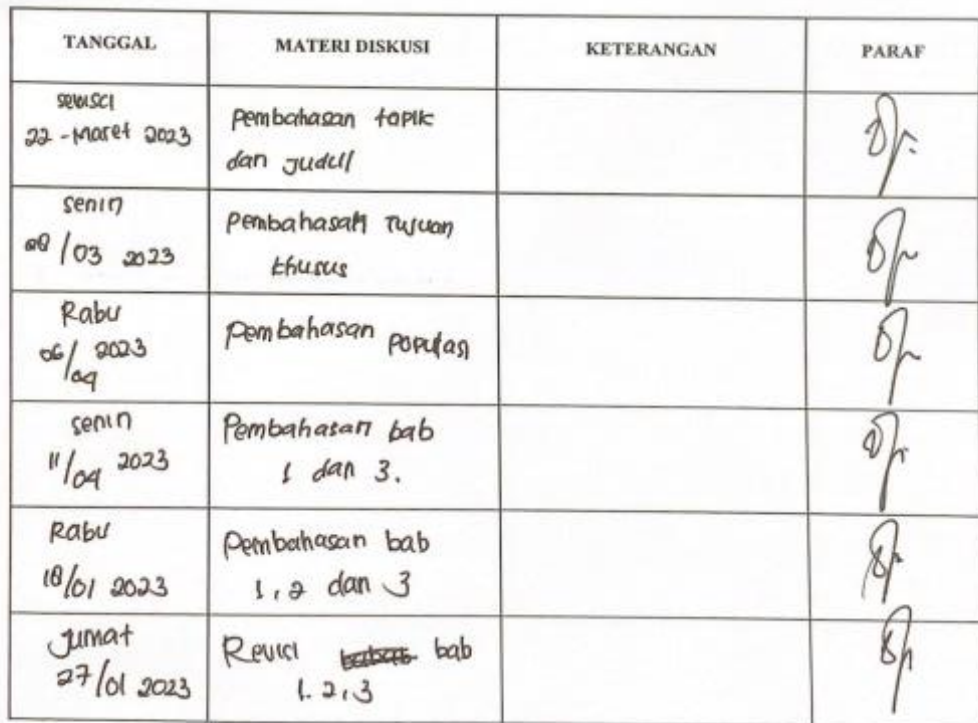 TANGGAL MATERI DISKUSI KETERANGAN PARAF
Pembahasan topik
22 - Maret 2023
dan Judul
Senin
Pembahasan Tujuan
/03 2023
khusus
Rabu
06/04 2023
Pembahasan populasi
Senin
11/04 2023
Pembahasan bab
1 dan 3.
Rabu
18/01 2023
Pembahasan bab
1, 2 dan 3
Jumat
27/01 2023
Revici bab
1. 2, 3